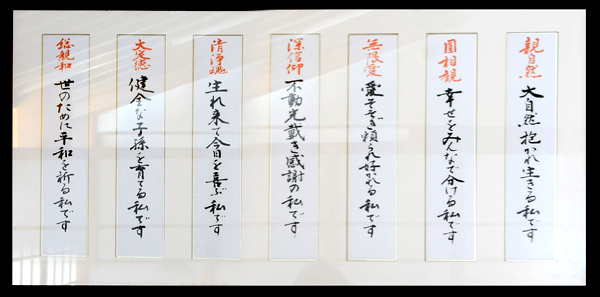 親自然 大自然抱かれ生きる私です
圓相観 幸せをみんなで分ける私です
無限愛 愛そそぎ頼られ好かれる私です
深信仰 不動光戴き感謝の私です
清浄魂 生れ来て今日を喜ぶ私です
大安徳 健全な子孫を育てる私です
総親和 世のために平和を祈る私です